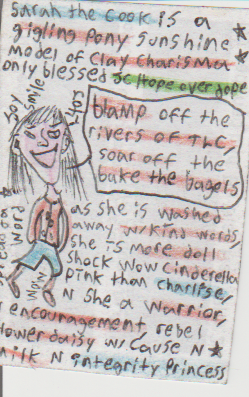 Sarah the Cook is a
gigling Pony Sunshine
model of Clay Charisma
only blessed JC Hope over dope
Joy
Smile
blamp off the
rivers of TLC,
soar off the
bake the bagels
as she is washed
away w/kind words
she is more doll
shock wow Cinderella
Pink than charlise,
N She a Warrior,
encouragement rebel
flower daisy w/ Cause N
milk N integrity Princess
Word
Wow